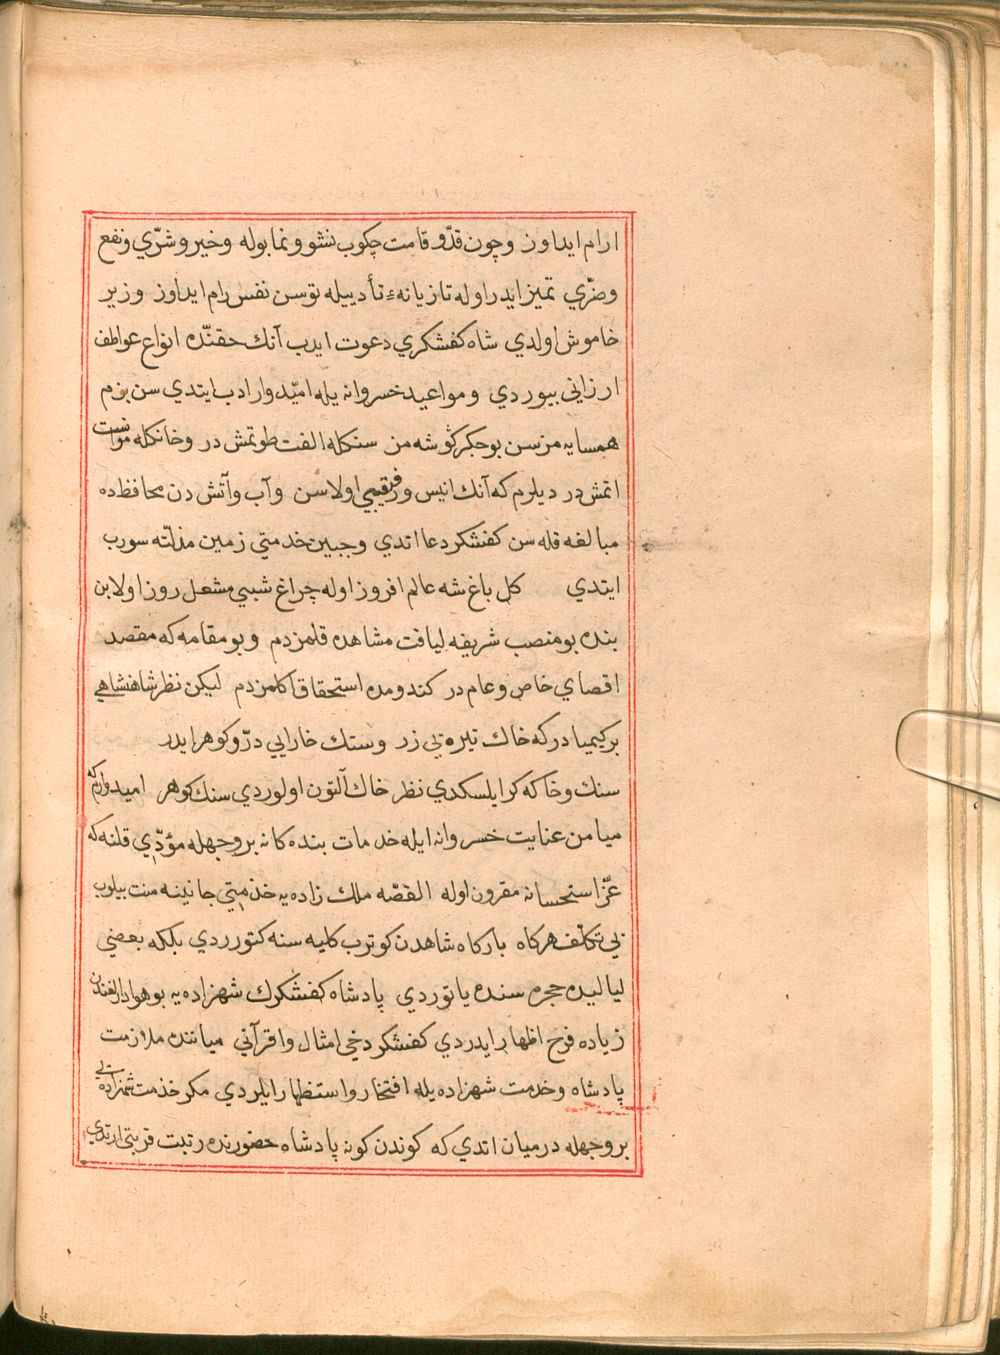 ارام ايداوز وچون قدّو قامت چكوب نشو ونما بوله وخير وشرّي ونفع
وضرّي تميز ايدر اوله تازيانهء تأدييله توسن نفس رام ايداوز وزير
خاموش اولدي شاه كفشكري دعوت ايدب آنك حقنّده انواع عواطف
ارزاني بيوردي ومواعيد خسروانه يله اميّدوار ادب ايتدي سن بزم
همسايه مزسن بوجكر كوشه من سنكله الفت طوتمش در وخانكله موانست
اتمش در ديلرم كه آنك انيس ورفيقيي اولاسن وآب وآتش دن محافظه ده
مبالغه قله سن كفشكر دعا اتدي وجبين خدمتي زمين مذلّته سورب
ايتدي كل باغ شه عالم افروز اوله چراغ شبي مشعل روز اولابن
بنده بو منصب شريفه لياقت مشاهده قلمزدم وبو مقامه كه مقصد
اقصاي خاص وعام در كندومده استحقاق اكلمزدم ليكن نظر شاهنشاهي
بر كيميادر كه خاك تيره يي زر وسنك خارايي درّ وكوهر ايدر
سنك وخاكه كر ايلسكدي نظر خاك آلتون اولوردي سنك كوهر اميدوارم كه
ميامن عنايت خسروانه ايله خدمات بنده كانه بر وجهله مؤدّي قلنه كه
عزّ استحسانه مقرون اوله القصّه ملك زاده يه خذمتي جانينه منت بيلوب
بي تكلّف هركاه باركاه شاهدن كوترب كلبه سنه كتورردي بلكه بعضي
لياليده حجره سنده ياتوردي پادشاه كفشكرك شهزاده يه بو هوادارلغندن
زياده فرح اظهار ايدردي كفشكر دخي امثال واقرآني ميانتده ملازمت
پادشاه وخدمت شهزاده يله افتخار واستظهار ايلردي مكر خذمت شهزاده يي
بر وجهله درميان اتدي كه كوندن كونه پادشاه حضورنده رتبت قربتي ارتدي